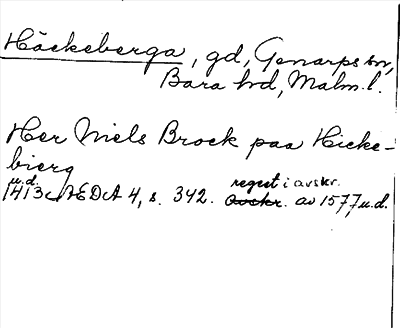 Häckeberga, gd, Genarps sn,
Bara hd, Malm. l.
Her Niels Brock paa Hicke-
bierg
u.d. regest i avskr.
1413 ÆDA 4, s. 342. avskr. av 1577 u.d.